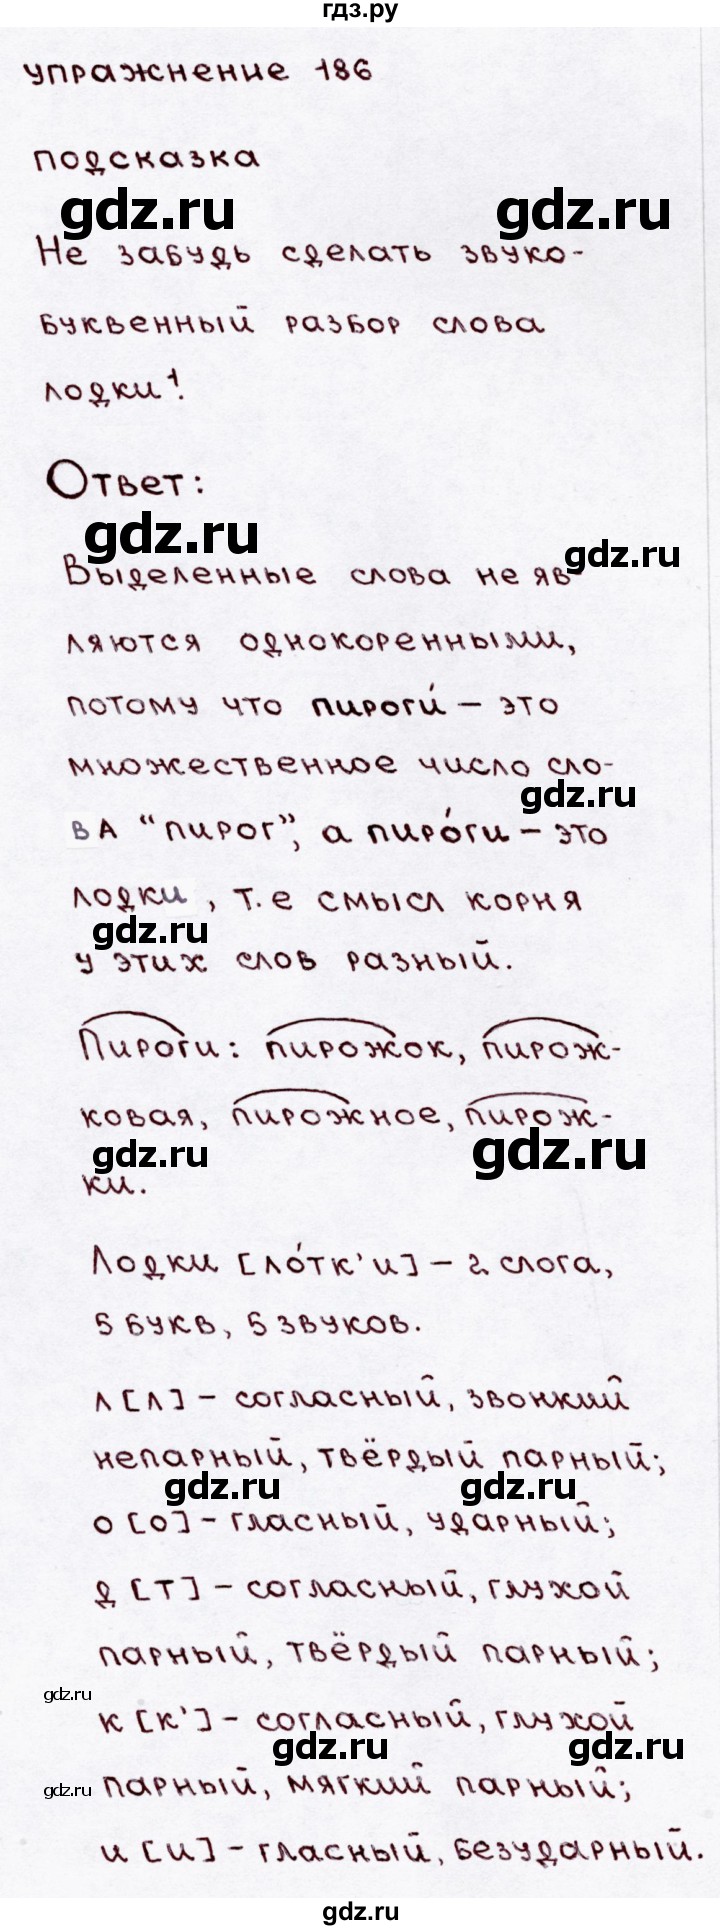 гдз.ру
упражнение 186
подсказка
gdz.ru gdz.ru
Не забудь сделать звуко-
буквенный разбор слова
лодки!
Ответ:
gdz.ru gdz.ru
Выделенные слова не яв-
ляются однокоренными,
потому что пироги́ – это
множественное число сло-
gdz.ru
вА "пирог", а пиро́ги – это
лодки, т.е смысл корня
gdz.ru
у этих слов разный.
Пироги: пирожок, пирож-
ковая, пирожное, пирож-
gdz.ru gdz.ru
ки.
Лодки [ло́тк'и] – 2 слога,
5 букв, 5 звуков.
л [л] – согласный, звонкий
непарный, твёрдый парный;
gdz.ru gdz.ru
о [о] – гласный, ударный;
д [т] – согласный, глухой
парный, твёрдый парный;
gdz.ru
к [к'] – согласный, глухой
gdz.ru gdz.ru
gdz.ru парный, мягкий парный;
и [и] – гласный, безударный.
gdz.ru